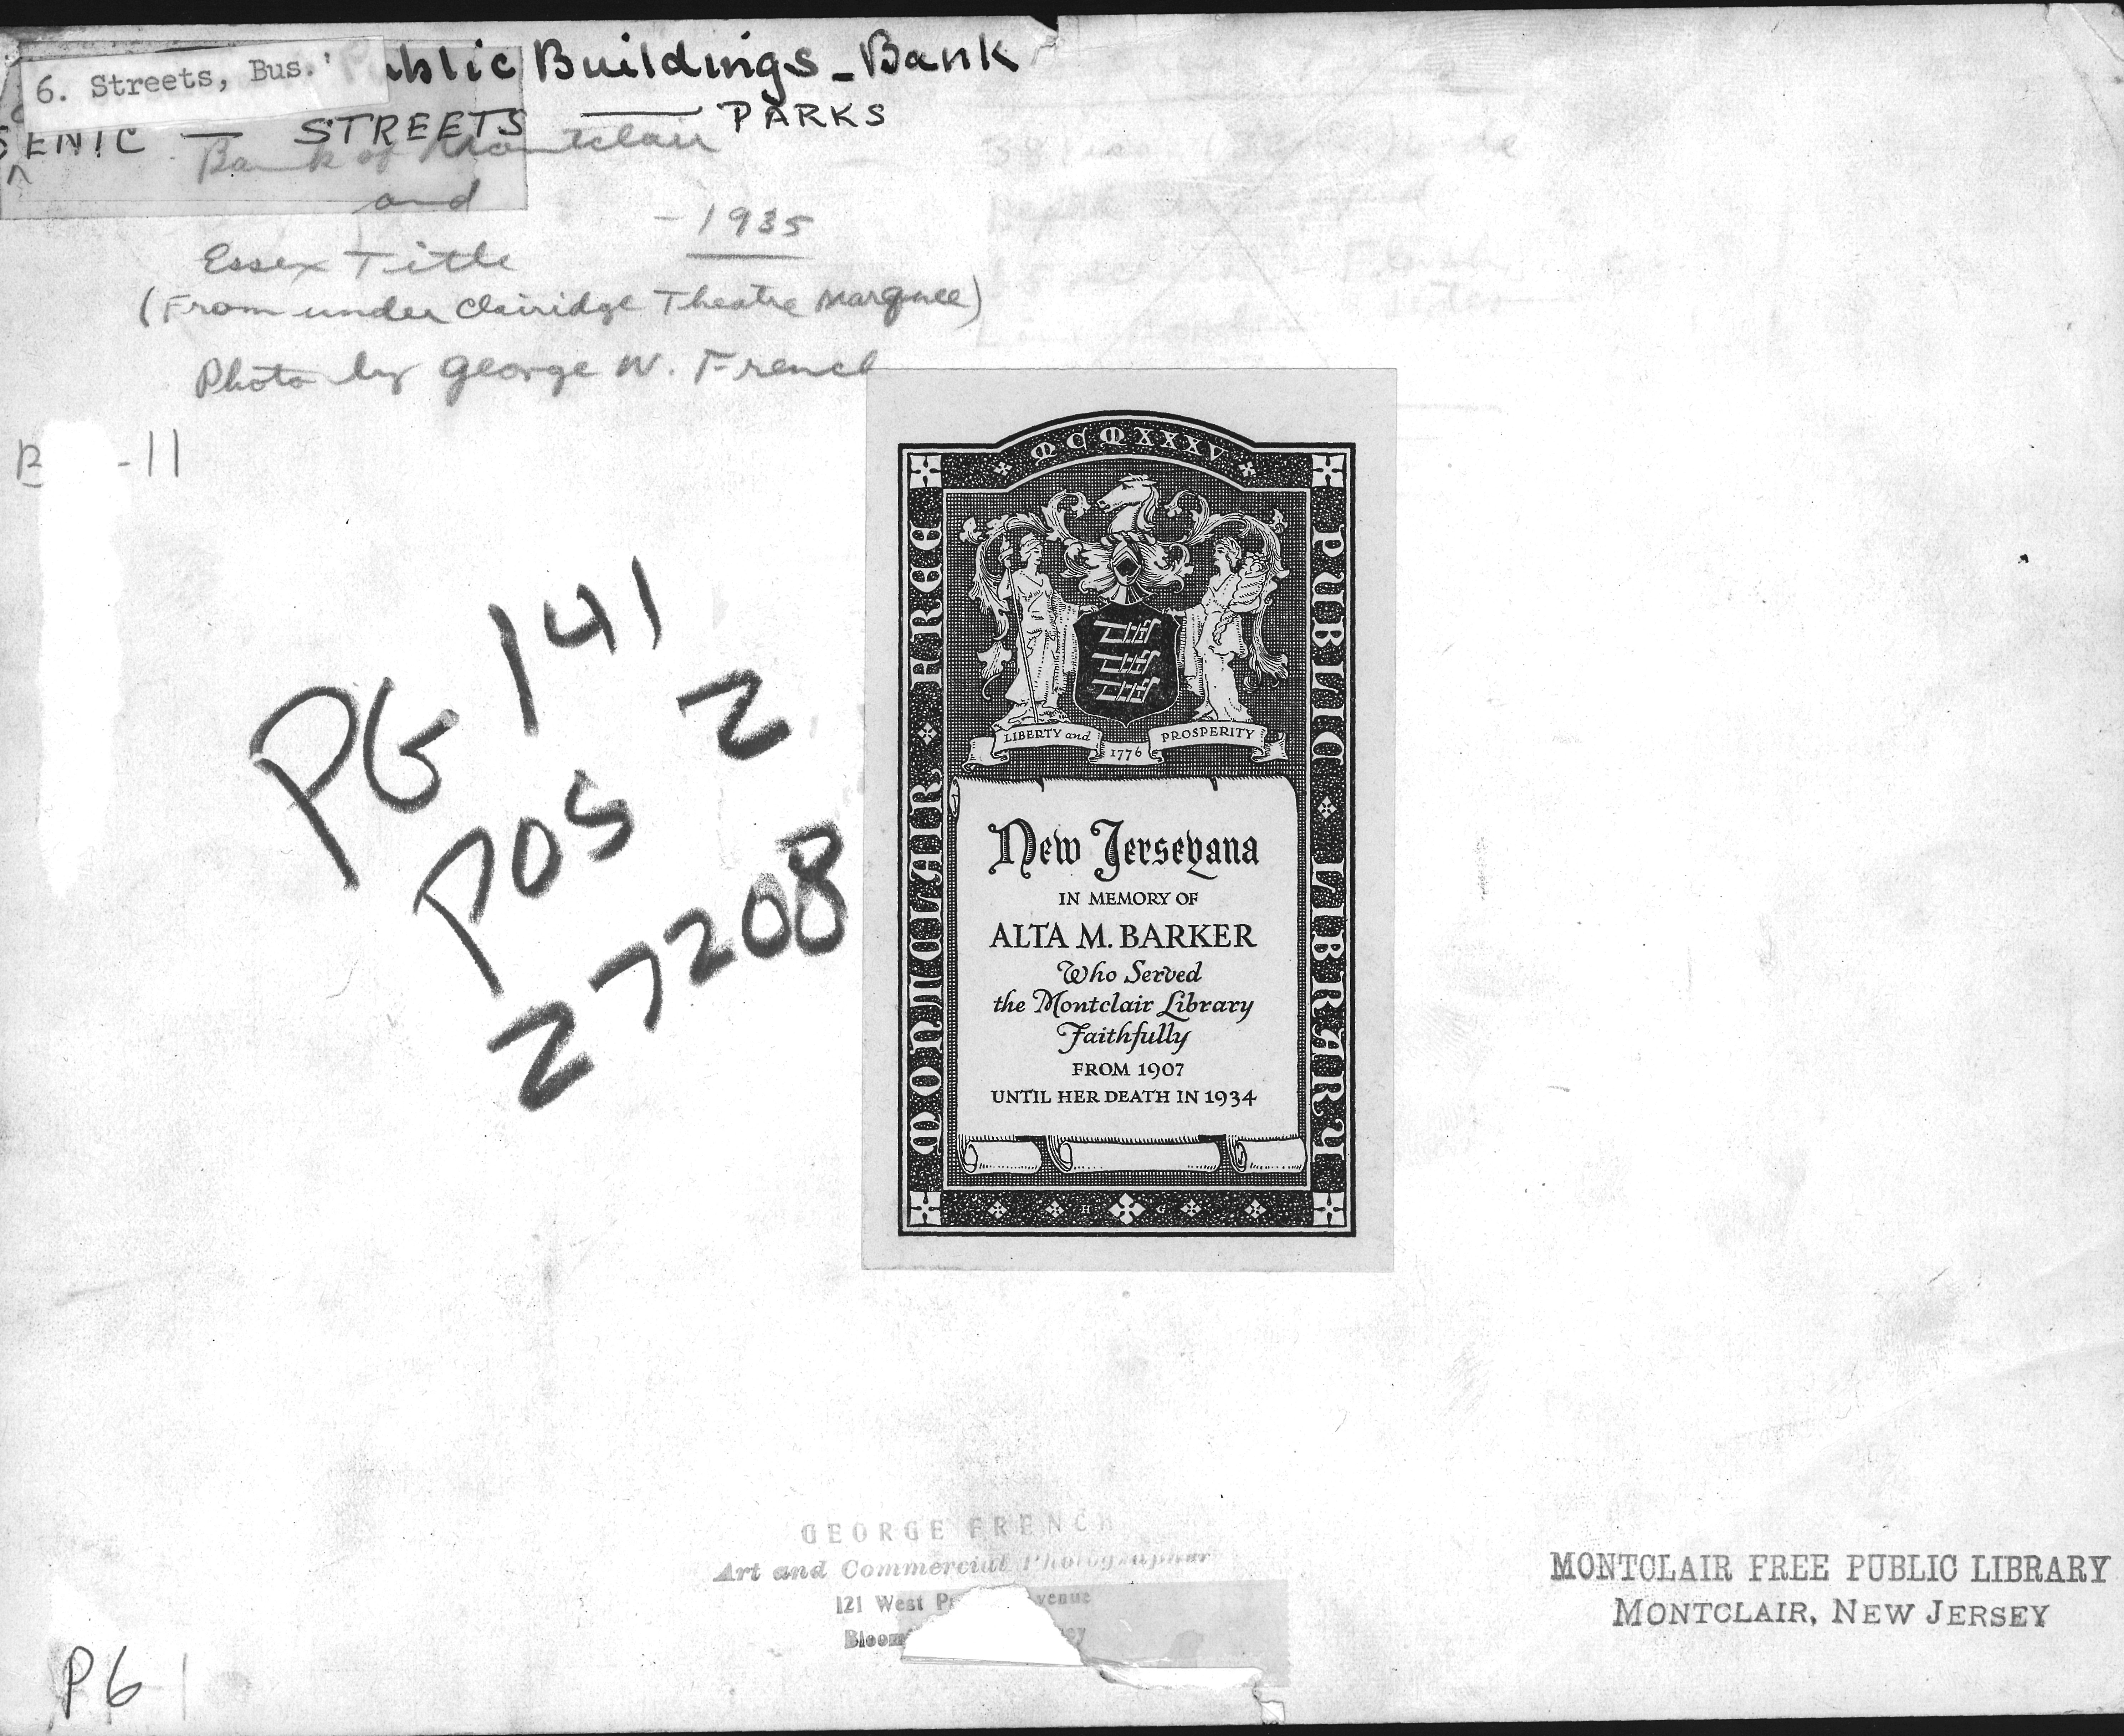 6. Streets, Bus.
Public Buildings - Bank
SENIC — STREETS — PARKS
Bank of Montclair
and
- 1935
Essex Title
(From under Clairidge Theatre Marquee)
Photo by George W. French
B -11
PG 141
POS 2
27208
MCMXXXV
MONTCLAIR FREE PUBLIC LIBRARY
LIBERTY and PROSPERITY
1776
New Jerseyana
IN MEMORY OF
ALTA M. BARKER
Who Served
the Montclair Library
Faithfully
FROM 1907
UNTIL HER DEATH IN 1934
H G
GEORGE FRENCH
Art and Commercial Photographer
121 West
Bloom
MONTCLAIR FREE PUBLIC LIBRARY
MONTCLAIR, NEW JERSEY
P6